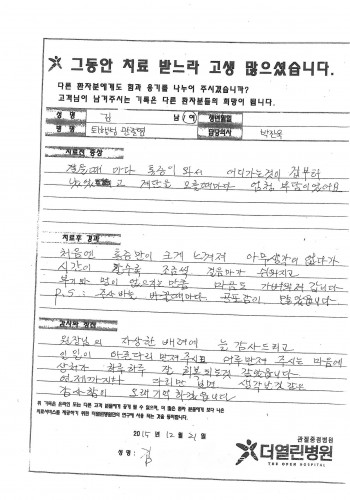 그동안 치료 받느라 고생 많으셨습니다.
다른 환자분에게도 힘과 용기를 나누어 주시겠습니까?
고객님이 남겨주시는 기록은 다른 환자분들의 희망이 됩니다.
성 명 김 남 / 여 생년월일
병 명 퇴행성 관절염 담당의사 박진욱
치료전 증상
걸을때 마다 통증이 와서 어디가는것이 겁부터
났었고 계단을 오를때마다 엄청 부담이었어요
치료후 경과
처음엔 통증만이 크게 느껴져 아무생각이 없다가
시간이 갈수록 조금씩 걸음마가 쉬워지고
붓기와 멍이 없어지는 만큼 마음도 가벼워져 갑니다
P.S : 주사바늘 바꿀때마다 공포감이
감사와 칭찬
원장님의 자상한 배려에 늘 감사드리고
상처가 하루하루 잘 회복되는것 같았습니다
언제까지나 다리만 보면 생각날것 같은
감사함이 오래 기억하겠습니다
위 기록은 온라인 또는 다른 고객 분들에게 공개 될 수 있으며, 이 름은 환자 분들에게 보다 나은
의료서비스를 제공하기 위한 더열린병원만의 연구에 사용 되는 것을 동의합니다.
2015 년 12 월 21 일
성 명 : 김
관절중점병원
더열린병원
THE OPEN HOSPITAL